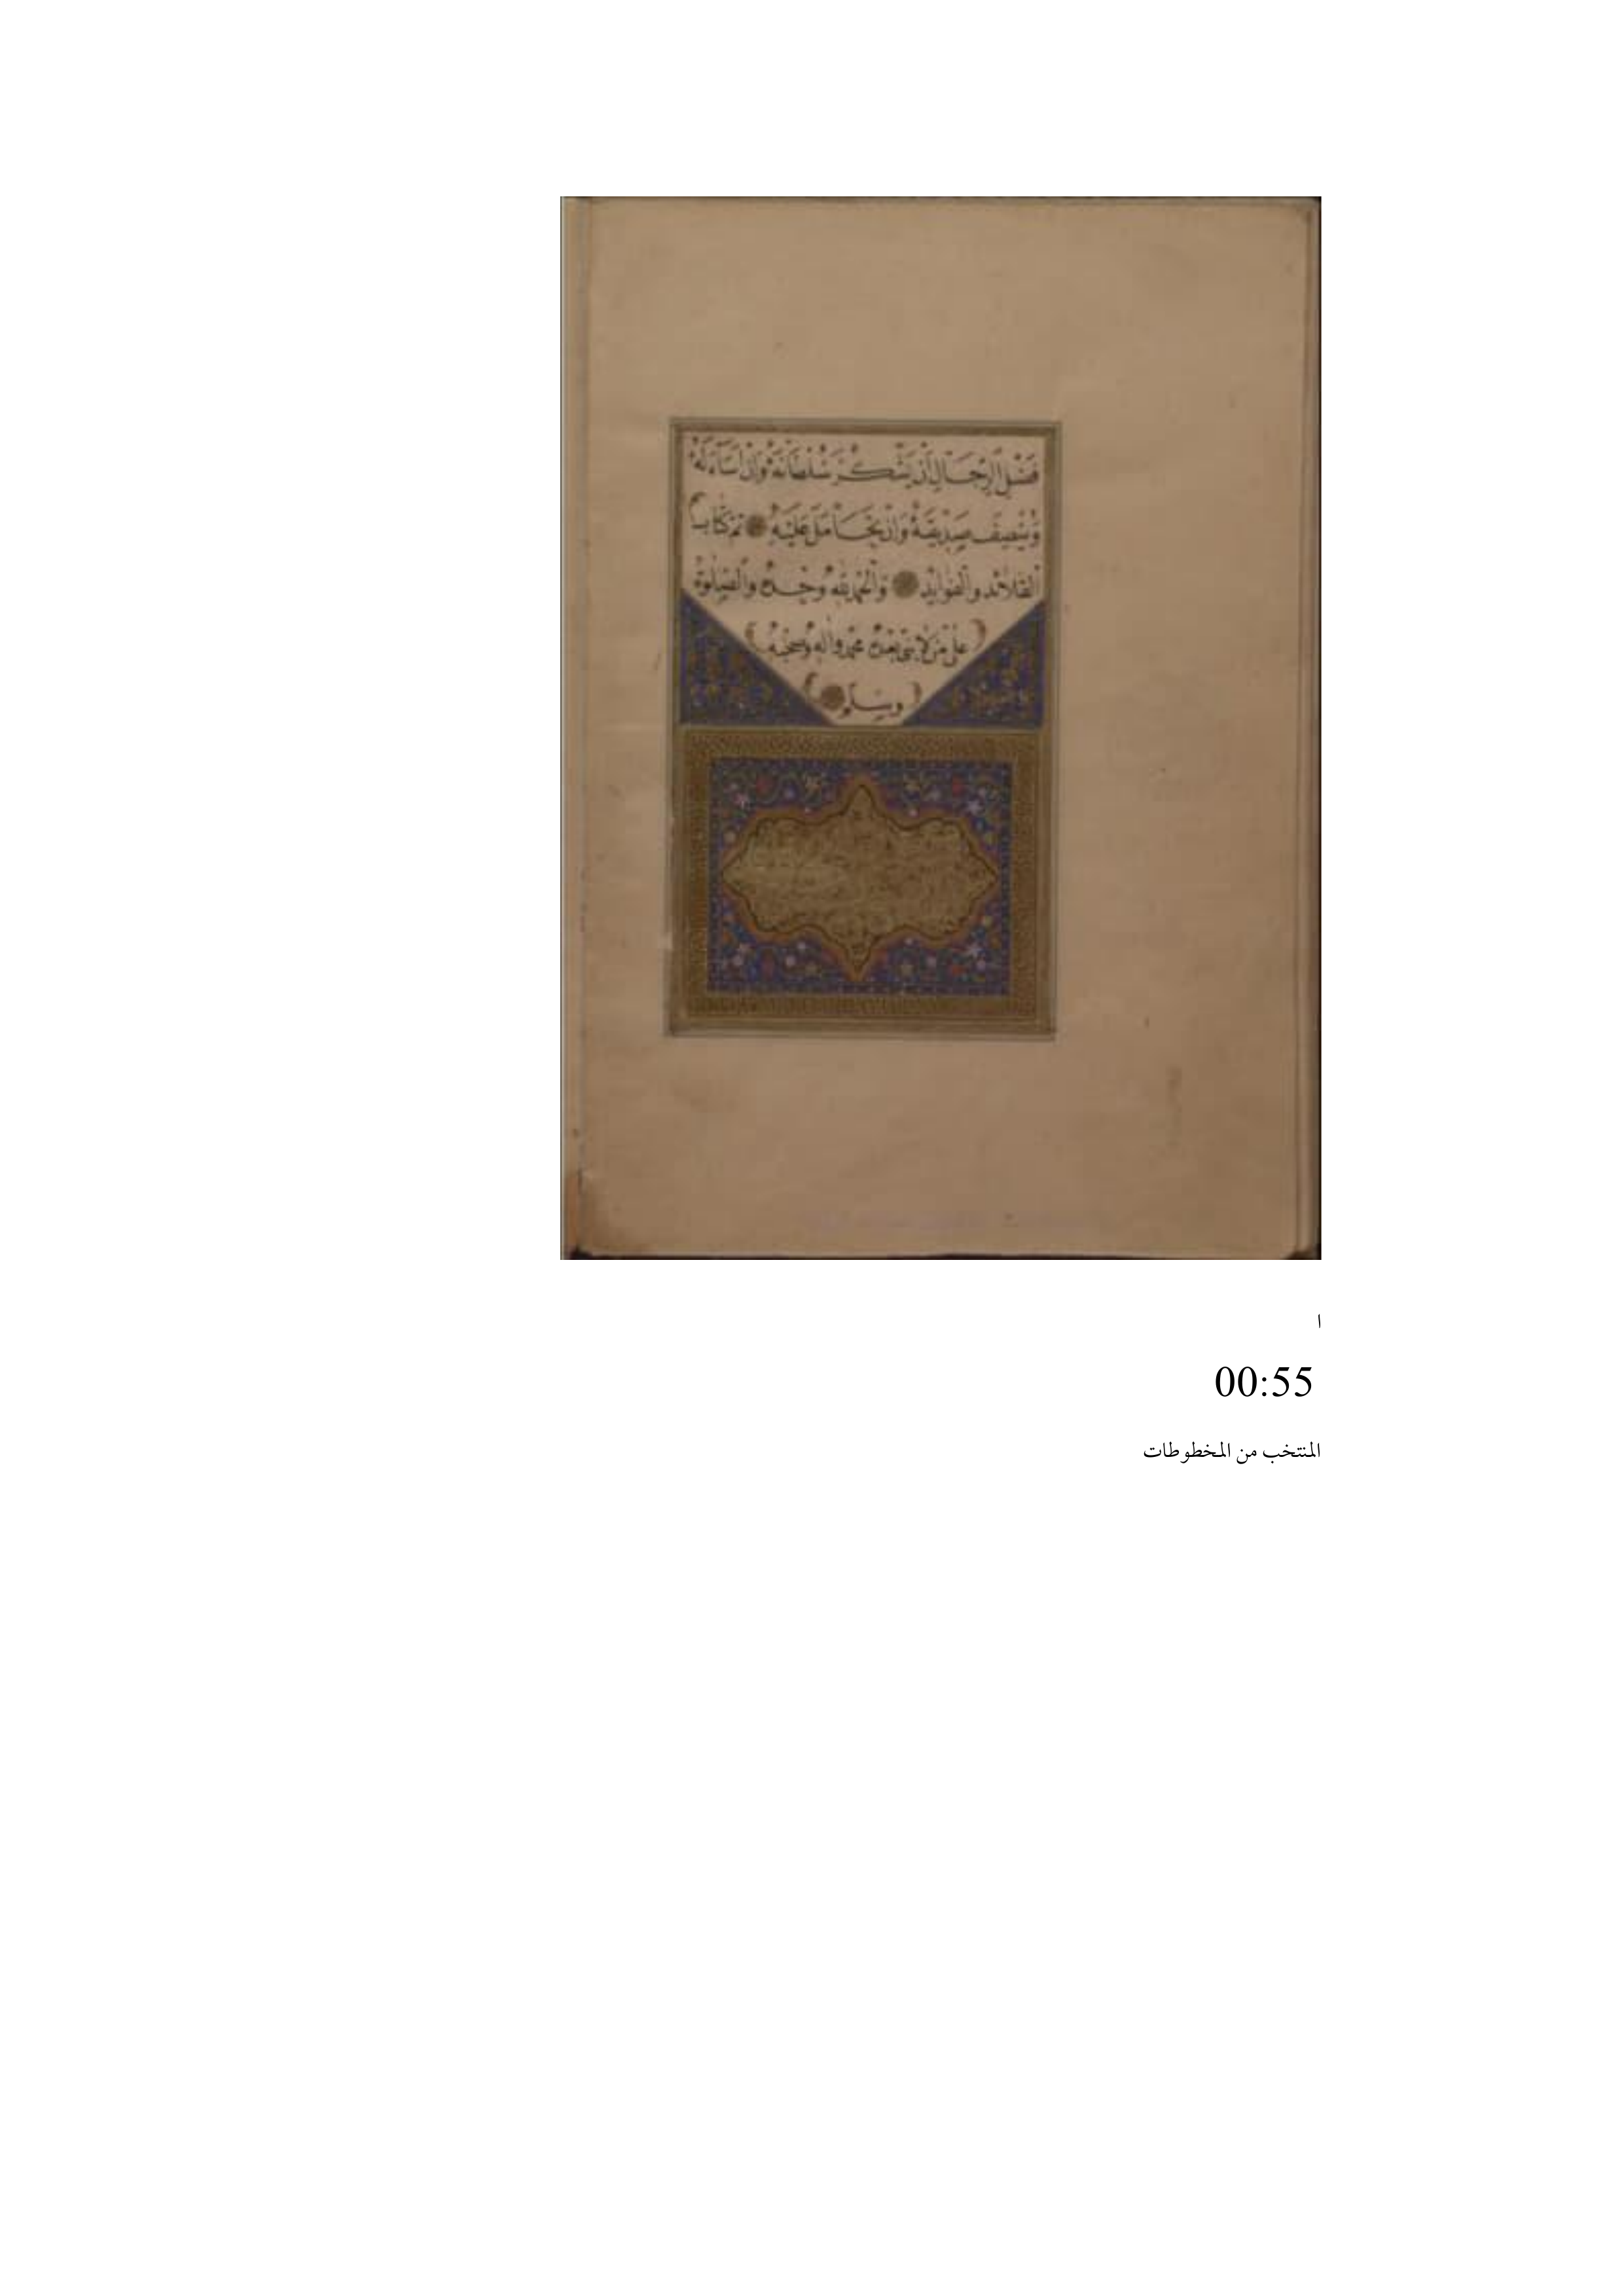 فضل الرجال ان يشكر سلطانه وان اساء له
وينصف صديقه وان تحامل عليه تم كتاب
القلائد والفوايد والحمد لله وحده والصلوة
على من لا نبى بعده محمد واله وصحبه
وسلم
ا
00:55
المنتخب من المخطوطات